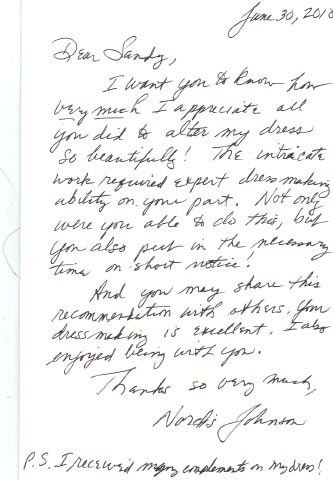 June 30, 2010
Dear Sandy,
I want you to know how
very much I appreciate all
you did to alter my dress
so beautifully! The intricate
work required expert dressmaking
ability on your part. Not only
were you able to do this, but
you also put in the necessary
time on short notice!
And you may share this
recommendation with others. Your
dressmaking is excellent. I also
enjoyed being with you.
Thanks so very much,
Johnson
P.S. I received many complements on my dress!